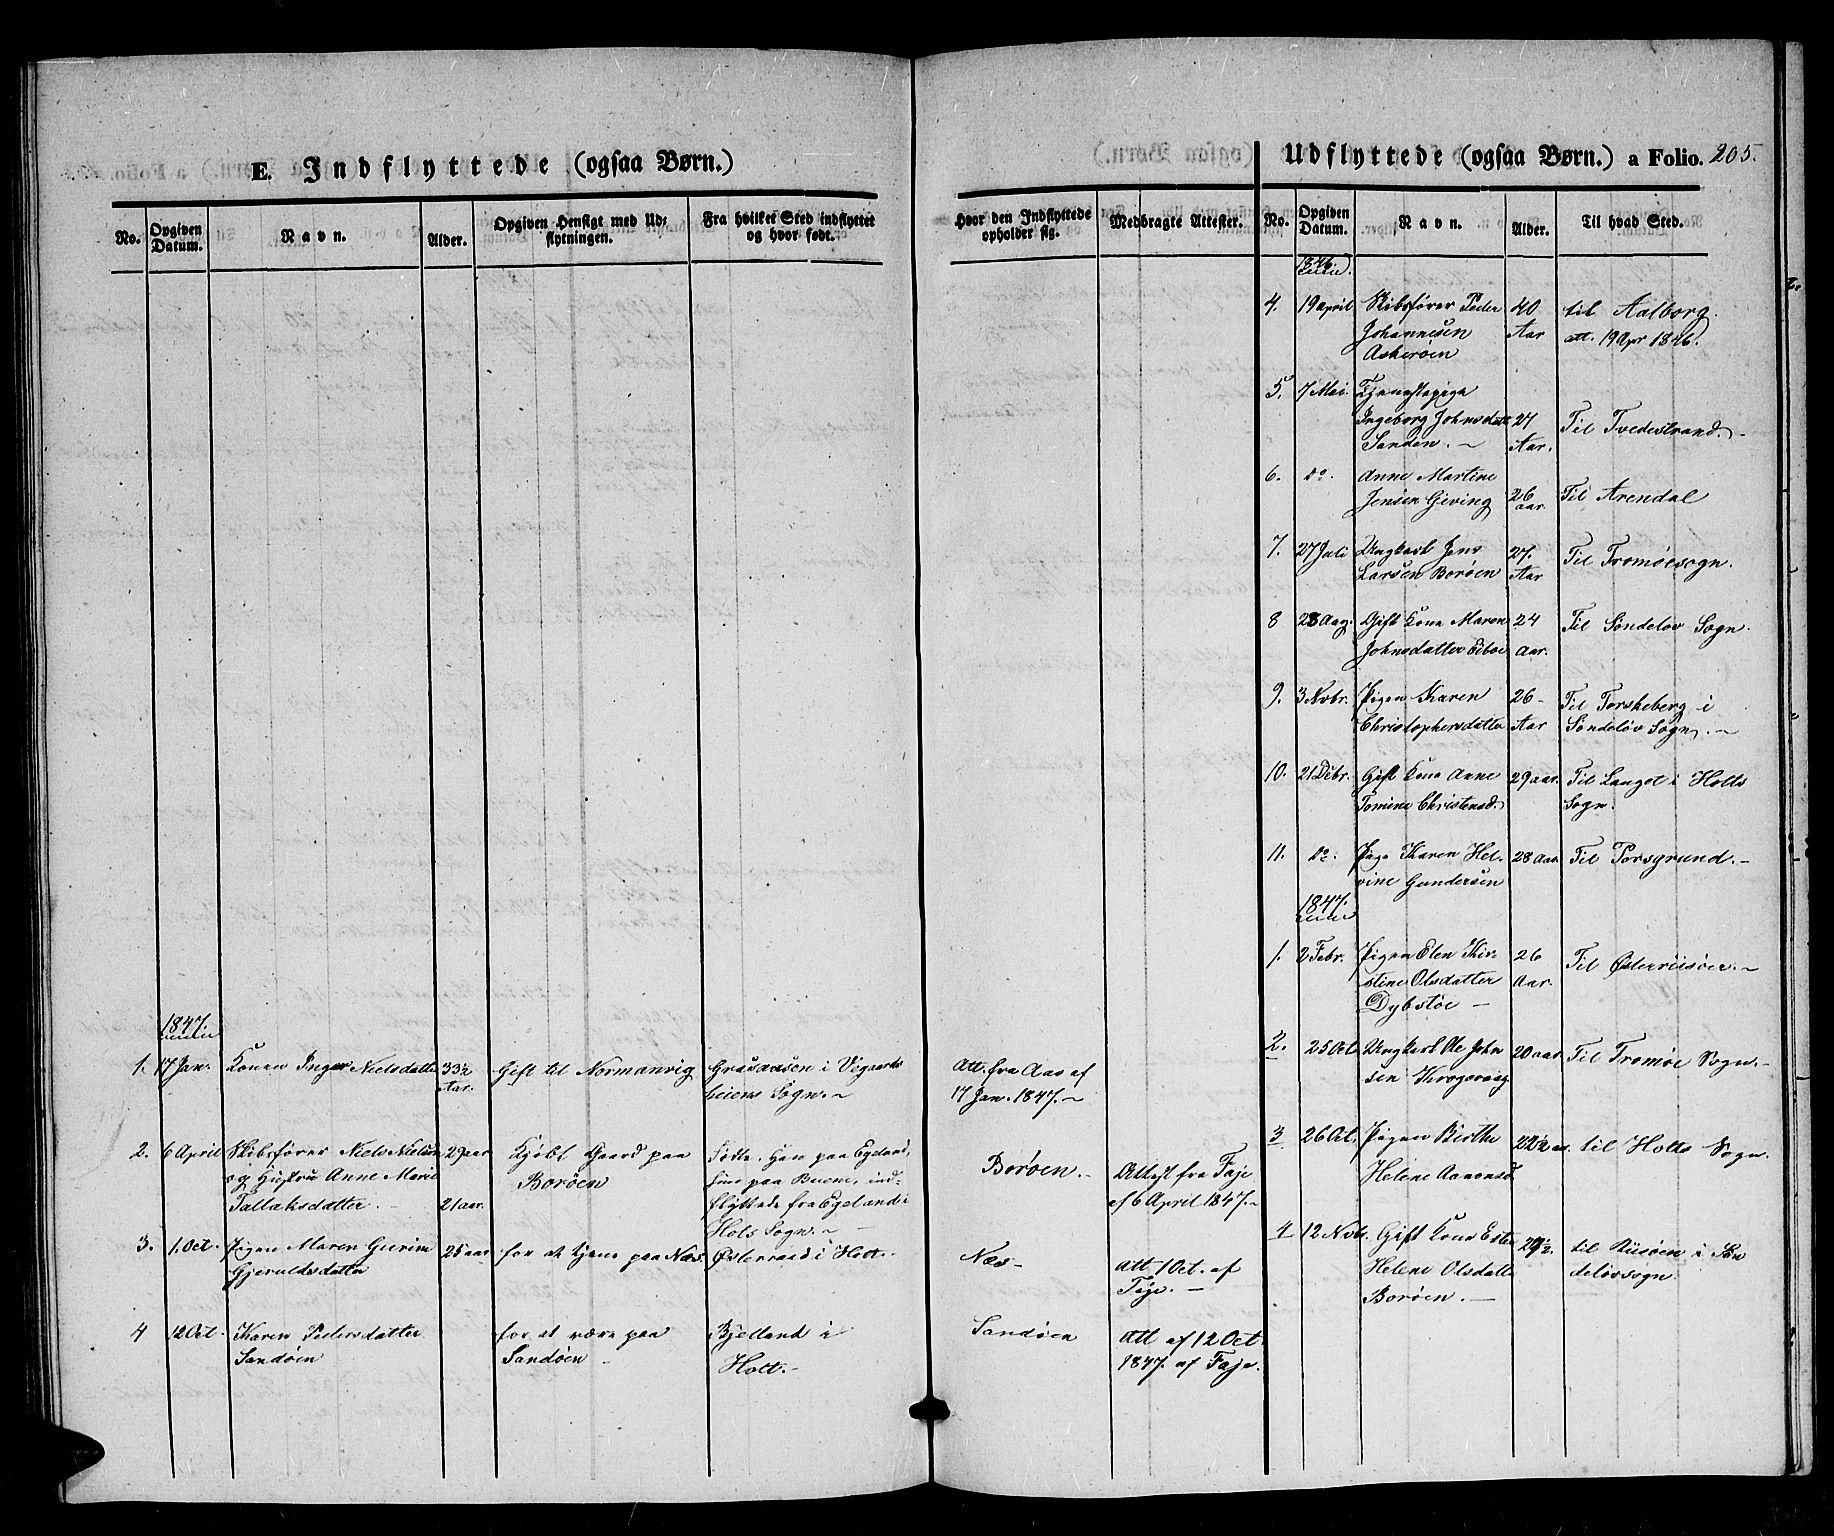 E. Indflyttede (ogsaa Børn.)
No.
Opgiven Datum.
Navn.
Alder.
Opgiven Hensigt med Udflytningen.
Fra hvilket Sted indflyttet og hvor født.
1847.
1. 17 Jan. Konen Inger Nielsdatter 33½ Aar. Gift til Normanvig Grasaasen i Vegaarsheiens Sogn.
2. 6 April Skibsfører Niels Nielsen 29 aar Kjøbt Gaard paa Fødte, Han paa Egeland,
og Hustru Anne Marie Borøen Hun paa Buene, ind-
Tallaksdatter. 21 aar. flyttede fra Egeland i
Hols Sogn.
3. 1. Oct. Pigen Maren Gurine 25 aar for at tjene paa Næs. Østeraad i Holt.
Gjeruldsdatter
4 12 Oct. Karen Pedersdatter for at være paa Bjelland i
Sandøen Sandøen Holt.
Hvor den Indflyttede opholder sig.
Medbragte Attester.
Att. fra Aas af
17 Jan. 1847.
Borøen. Attest fra Faje
af 6 April 1847.
Næs Att 1 Oct. af
Faje.
Sandøen Att af 12 Oct.
1847. af Faje.
Udflyttede (ogsaa Børn.) a Folio. 205.
No.
Opgiven Datum.
Navn.
Alder.
Til hvad Sted.
1846.
4. 19 april Skibsfører Peder 40 til Aalborg.
Johannesen Aar att. 19 Apr 1846.
Askerøen
5. 7 Mai. Tjenestepige
Ingeborg Johnsdatt 27 Til Tvedestrand.
Sanden. Aar.
6. Do. Anne Martine
Jensen Gieving 26 aar. Til Arendal
7. 27 Juli Ungkarl Jens 27. Til Tromøesogn.
Larsen Borøen Aar
8 28 Aug. Gift Kone Maren 24 Til Søndeløv Sogn.
Johnsdatter Eiboe aar.
9. 3 Novbr. Pigen Karen 26 Til Torskeberg i
Christophersdatter Aar Søndeløv Sogn.
10. 21 Debr. Gift Kone Anne 29 aar. Til Langet i Holts
Tomine Christensd. Sogn.
11. Do. Pige Karen Hel- 28 Aar. Til Porsgrund.
vine Gundersen
1847.
1. 2 Febr. Pigen Elen Kir- 26 Til Østerriisøer.
stine Olsdatter Aar.
Dybstøe
2. 25 Oct Ungkarl Ole John 20 aar Til Tromøe Sogn.
sen Krogevaag
3 26 Oct. Pigen Birthe 22½ aa. til Holts Sogn.
Helene Aanonsd
4 12 Nvbr. Gift Kone Ester 29½. til Riisøen i Søn
Helene Olsdatter deløvsogn.
Borøen.